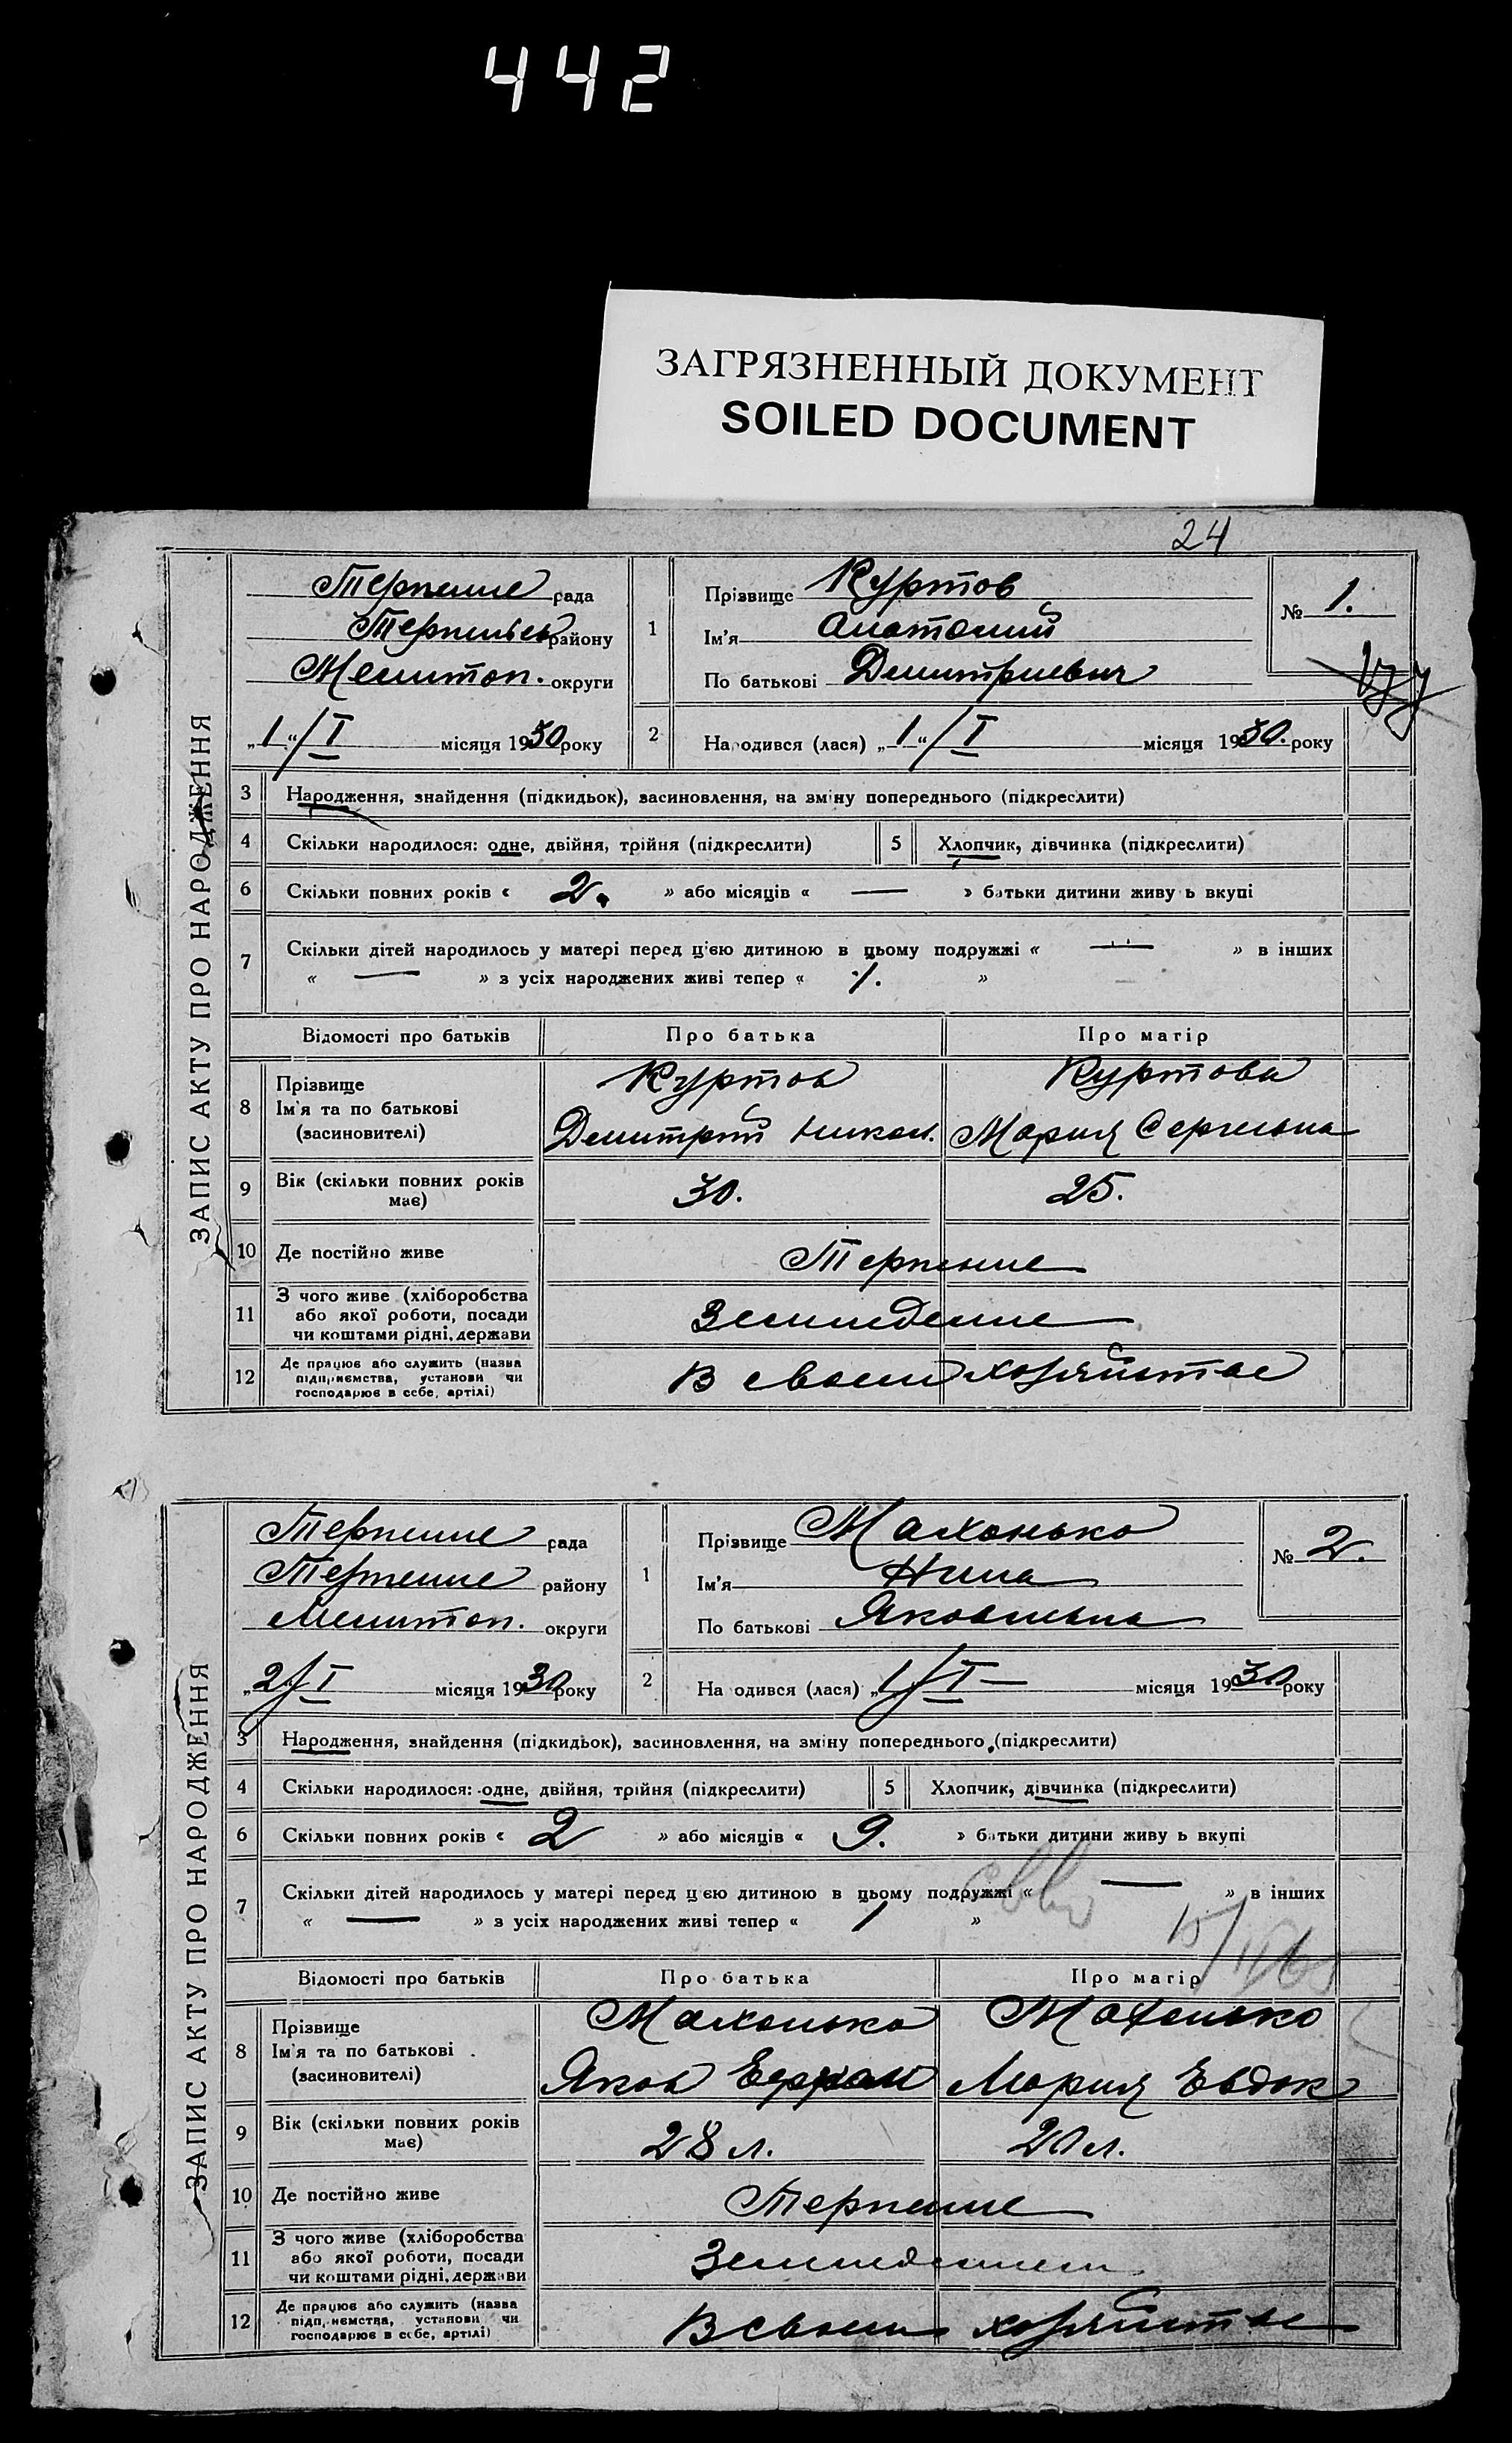 442
ЗАГРЯЗНЕННЫЙ ДОКУМЕНТ
SOILED DOCUMENT
24
ЗАПИС АКТУ ПРО НАРОДЖЕННЯ
Терпение рада
район
Мелитоп. округи
„1“/I місяця 1930 року
1 Прізвище Куртов
Ім'я Анатолий
По батькові Дмитриевич
№ 1.
2 Народився (лася) „1“/I місяця 1930. року
3 Народження, знайдення (підкидьок), засиновлення, на зміну попереднього (підкреслити)
4 Скільки народилося: одне, двійня, трійня (підкреслити) 5 Хлопчик, дівчинка (підкреслити)
6 Скільки повних років « 2. » або місяців « — » батьки дитини живу ь вкупі
7 Скільки дітей народилось у матері перед цією дитиною в цьому подружжі « — » в інших
« — » з усіх народжених живі тепер « 1. »
Відомості про батьків Про батька Про матір
8 Прізвище Куртов Куртова
Ім'я та по батькові Дмитрий Никол. Мария Сергеевна
(засиновителі)
9 Вік (скільки повних років має) 30. 25.
10 Де постійно живе Терпение
11 З чого живе (хліборобства
або якої роботи, посади
чи коштами рідні, держави Земледелие
12 Де працює або служить (назва
підприємства, установи чи
господарює в себе, артілі) В своем хозяйстве
ЗАПИС АКТУ ПРО НАРОДЖЕННЯ
Терпение рада
Терпение району
Мелитоп. округи
„2“/I місяця 1930 року
1 Прізвище Махонько
Ім'я Нина
По батькові Яковлевна
№ 2.
2 На одився (лася) „1“/I — місяця 1930 року
3 Народження, знайдення (підкидьок), засиновлення, на зміну попереднього (підкреслити)
4 Скільки народилося: одне, двійня, трійня (підкреслити) 5 Хлопчик, дівчинка (підкреслити)
6 Скільки повних років « 2 » або місяців « 9. » батьки дитини живу ь вкупі
7 Скільки дітей народилось у матері перед цією дитиною в цьому подружжі « — » в інших
« — » з усіх народжених живі тепер « 1 »
Відомості про батьків Про батька Про матір
8 Прізвище Махонько Махонько
Ім'я та по батькові Яков Мария Евдок
(засиновителі)
9 Вік (скільки повних років має) 28 л. 20 л.
10 Де постійно живе Терпение
11 З чого живе (хліборобства
або якої роботи, посади
чи коштами рідні, держави
12 Де працює або служить (назва
підприємства, установи чи
господарює в себе, артілі) В своем хозяйстве